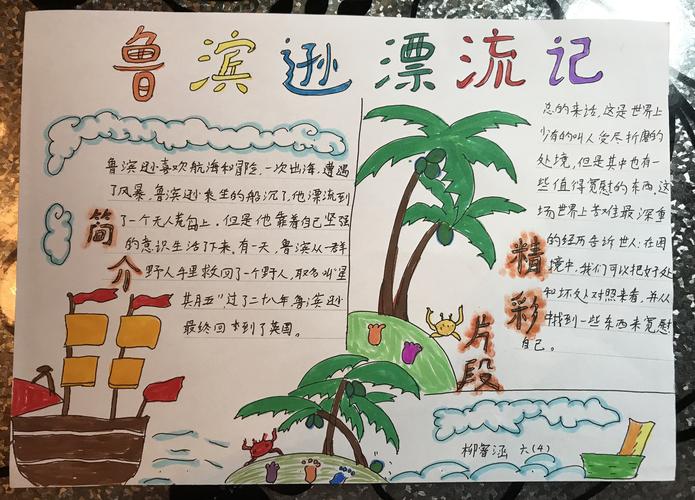 鲁滨逊漂流记
鲁滨逊喜欢航海和冒险，一次出海，遭遇
了风暴，鲁滨逊乘坐的船沉了，他漂流到
了一个无人荒岛上。但是他靠着自己坚强
的意识生活下来。有一天，鲁滨从一群
野人手里救回了一个野人，取名叫"星
期五"，过了二十八年鲁滨逊
最终回到了英国。
简介
总的来话，这是世界上
少有的叫人受尽折磨的
处境，但是其中也有一
些值得宽慰的东西，这
场世界上苦难最深重
的经历告诉世人：在困
境中，我们可以把好处
和坏处对照来看，并从
中找到一些东西来宽慰
自己。
精彩
片段
柳 涵 六(4)